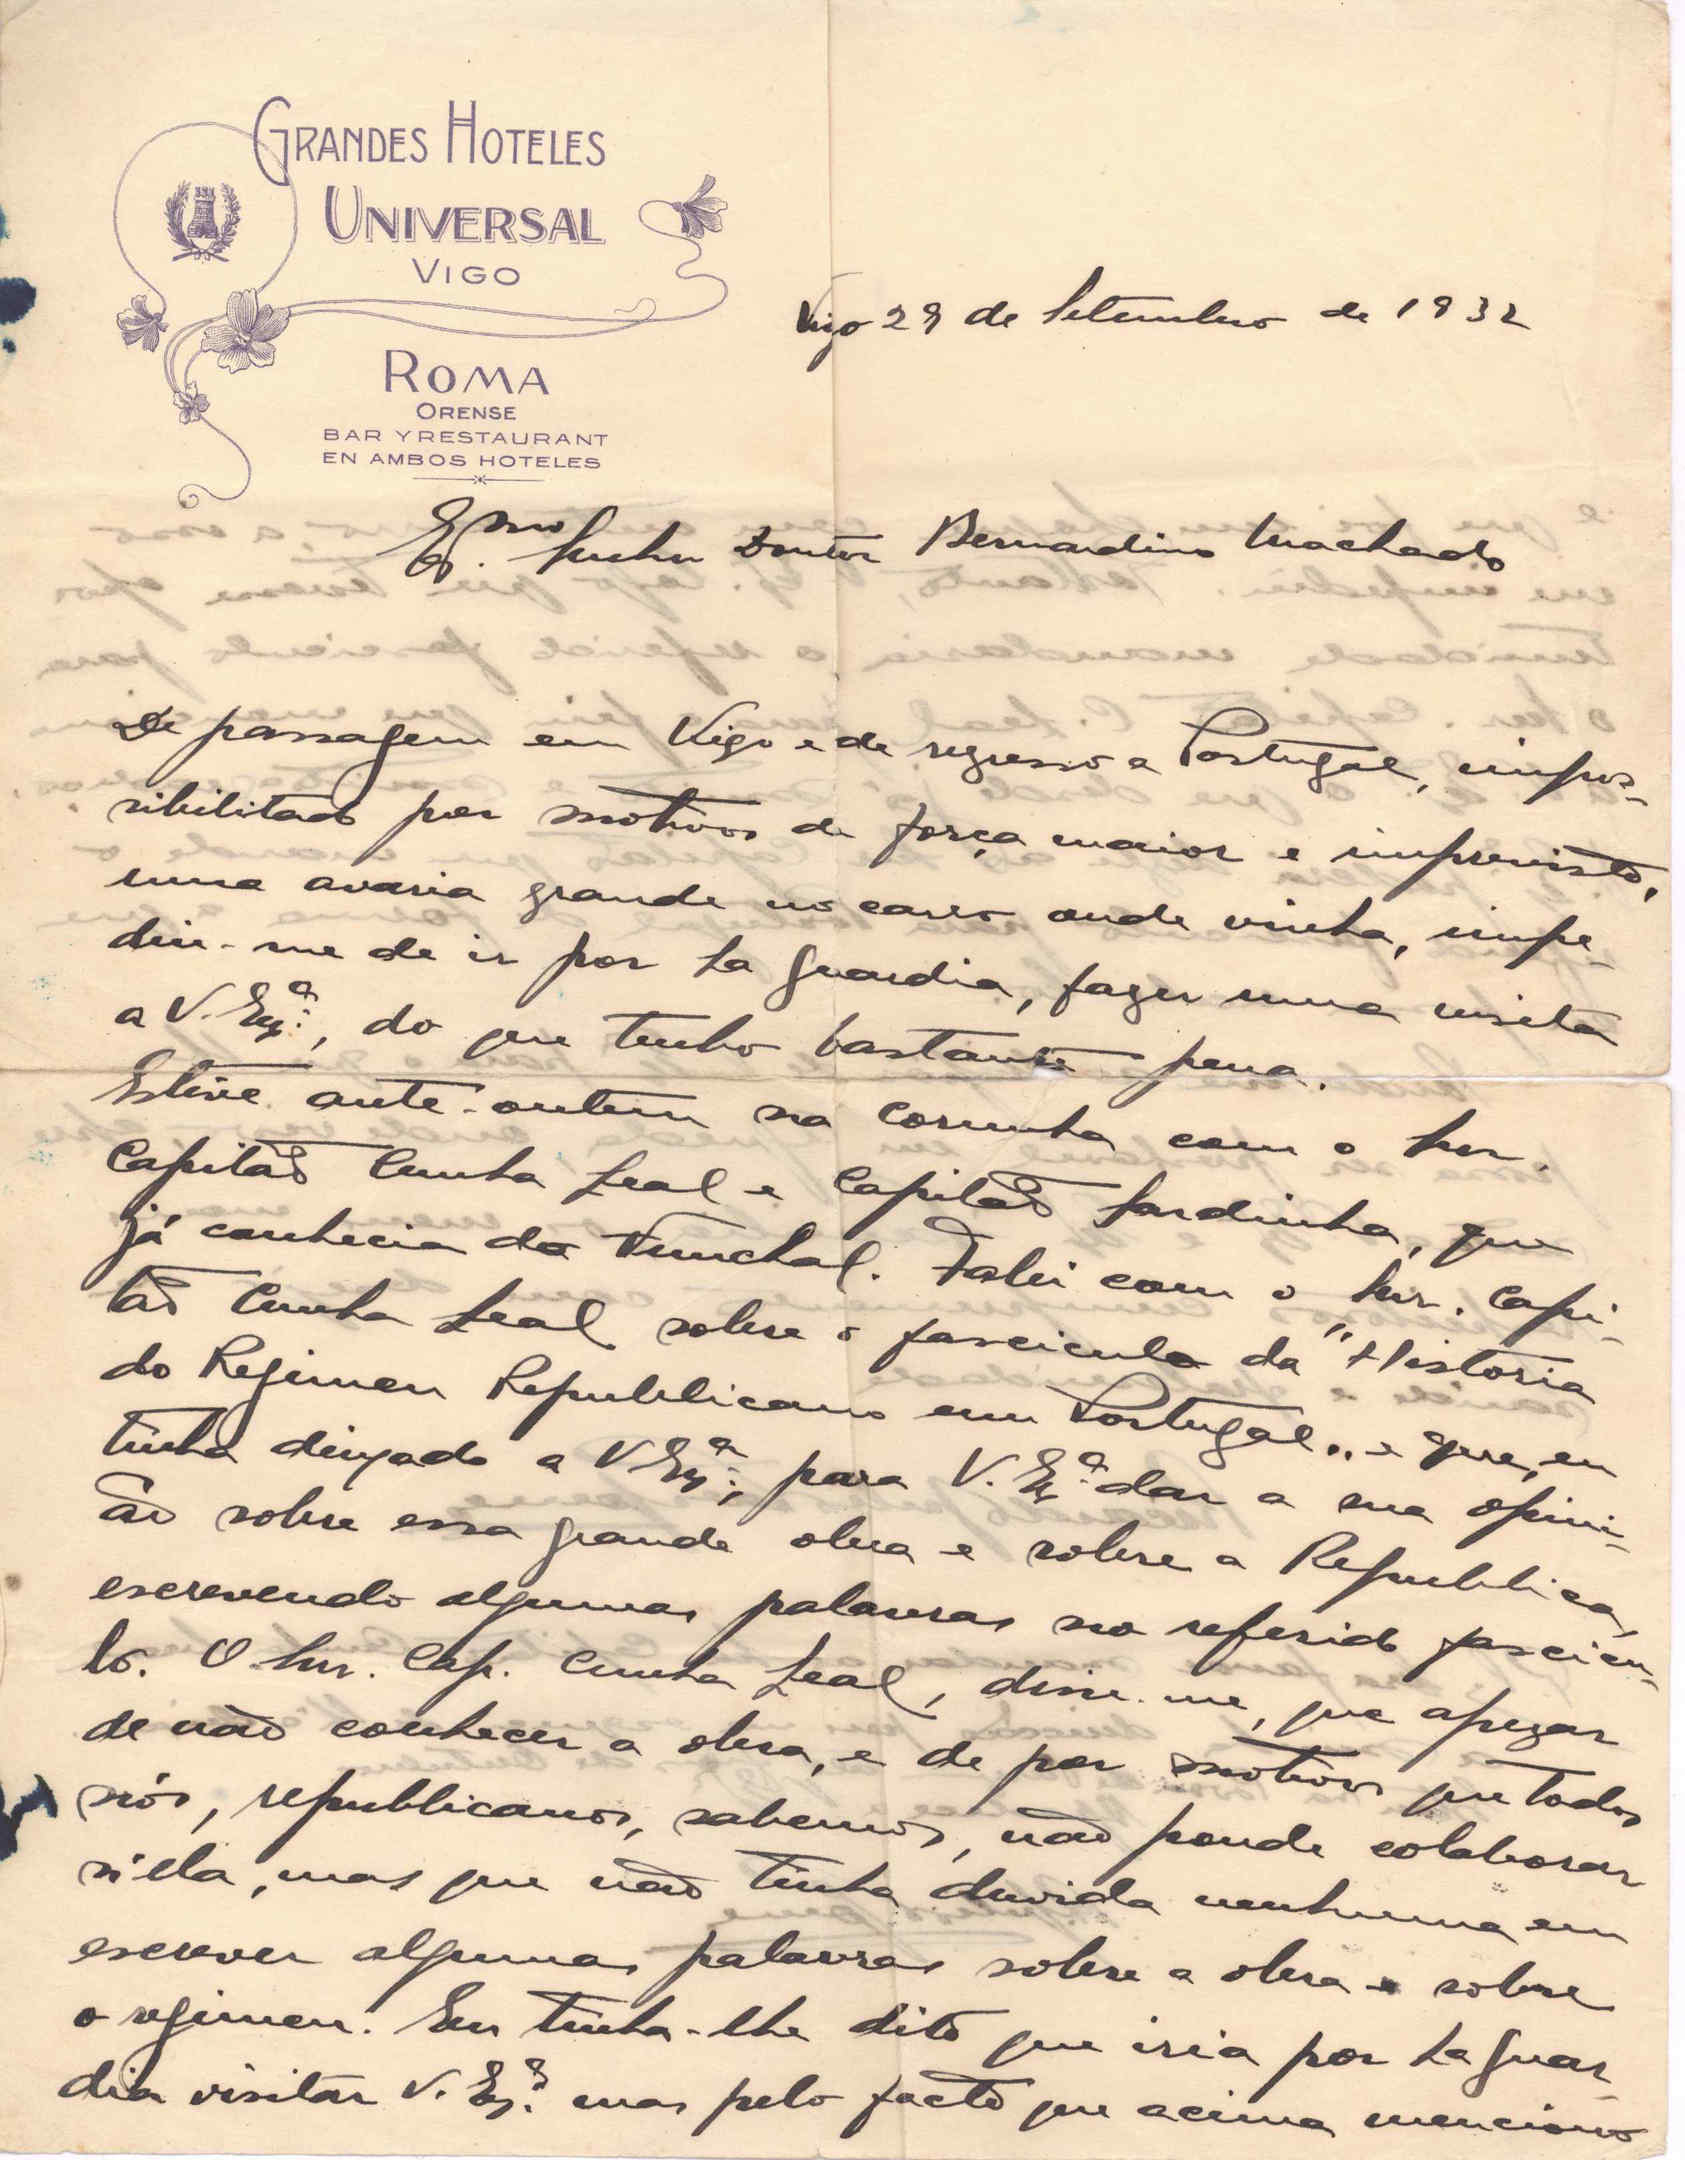 GRANDES HOTELES
UNIVERSAL
VIGO
ROMA
ORENSE
BAR Y RESTAURANT
EN AMBOS HOTELES
Vigo 29 de Setembro de 1932
Exmo. Senhor Doutor Bernardino Machado
De passagem em Vigo e de regresso a Portugal, impos-
sibilitado por motivos de força maior e imprevisto,
uma avaria grande no carro onde vinha, impe-
diu-me de ir por La Guardia, fazer uma visita
a V. Exª., do que tenho bastante pena.
Estive ante-ontem na Corunha com o Snr.
Capitão Cunha Leal e Capitão Sardinha, que
já conhecia do Funchal. Falei com o Snr. Capi-
tão Cunha Leal sobre o fasciculo da "Historia
do Regimen Republicano em Portugal" e que, eu
tinha dirigado a V Exª., para V. Exª. dar a sua opini-
ão sobre essa grande obra e sobre a Republica,
escrevendo algumas palavras no referido fascicu-
lo. O Snr. Cap. Cunha Leal, disse-me, que apezar
de não conhecer a obra, e de por motivos que todos
nós, republicanos, sabemos, não poude colaborar
n'ela, mas que não tinha duvida nenhuma em
escrever algumas palavras sobre a obra e sobre
o regimen. Eu tinha-lhe dito que iria por La Guar-
dia visitar V. Exª. mas pelo facto que acima menciono